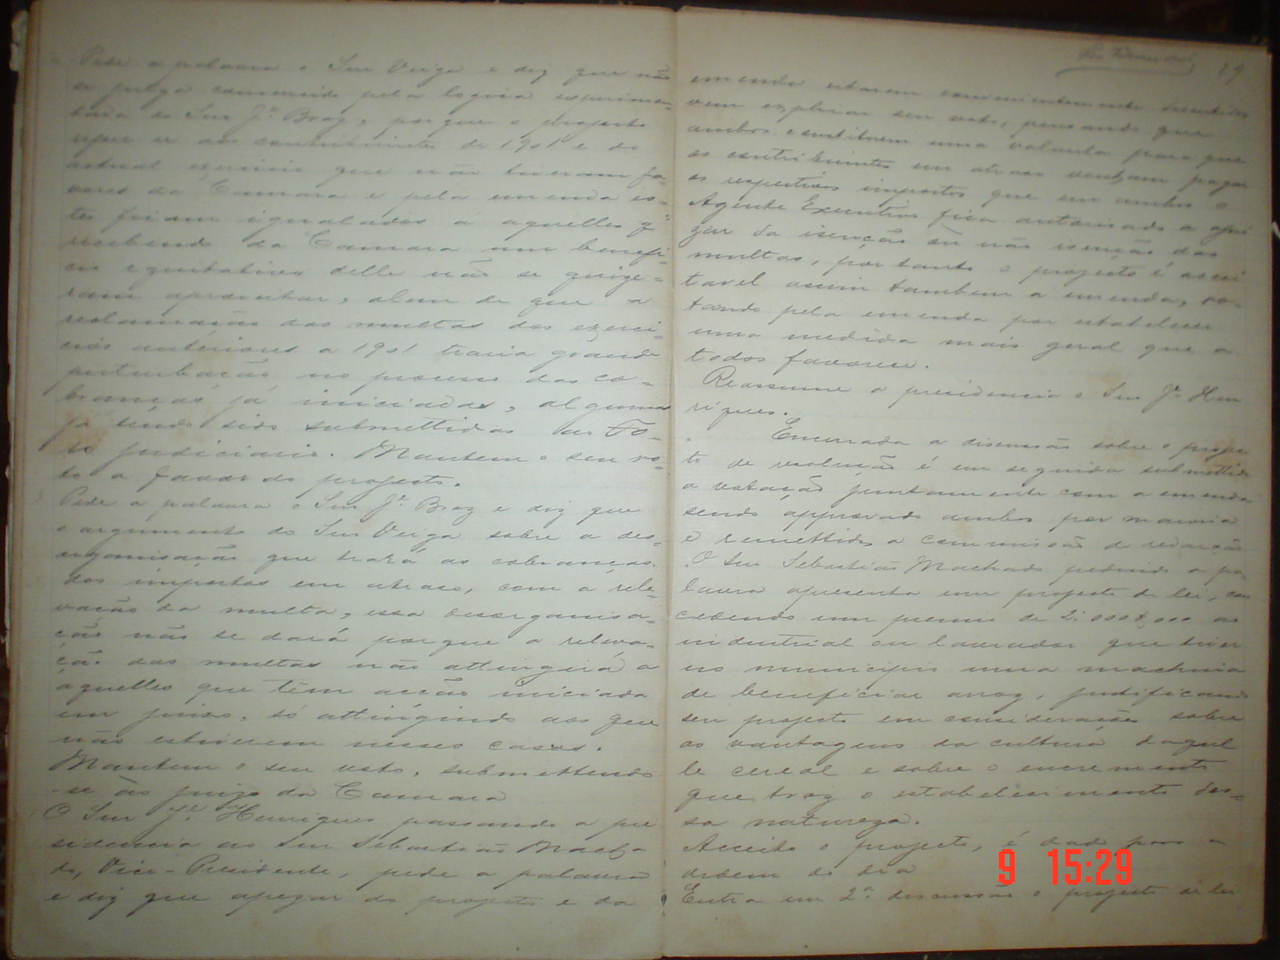 Pede a palavra o Snr Veiga e diz que não
se julga convencido pela logica experimen
tada do Snr Jº Braz, porque o projecto
refere-se aos contribuintes de 1901 e do
actual exercicio que não tiveram fa-
vores da Camara e pela emenda es-
tes foram igualados a aquelles q'
recebendo da Camara um benefi-
cio equitativo delle não se quize-
ram aproveitar, alem de que a
reclamação das multas dos exerci-
cios anteriores a 1901 traria grande
perturbação no processo das co-
branças já iniciadas, algumas
já tendo sido submettidas ao Fo-
ro judiciario. Mantem o seu vo-
to a favor do projecto.
Pede a palavra o Snr Jº Braz e diz que
o argumento do Snr Veiga sobre a des-
organisação que trará as cobranças
dos impostos em atraso, com a rele-
vação da multa, essa desorganisa-
ção não se dará porque a releva-
ção das multas não attingirá a
aquelles que têm acção iniciada
em juizo, só attingindo aos que
não estiverem nesses casos.
Mantem o seu voto, submettendo
-se ao juizo da Camara
O Snr Jº Henriques passando a pre
sidencia ao Snr Sebastião Macha-
do, Vice-Presidente, pede a palavra
e diz que apezar do projecto e da
29
emenda estarem convenientemente
vem explicar seu voto, pensando que
ambos constituem uma valvula para que
os contribuintes em atraso venham pagar
os respectivos impostos que em ambos o
Agente Executivo fica autorisado a
zar da isenção ou não isenção das
multas, portanto o projecto é accei
tavel assim tambem a emenda, vo-
tando pela emenda por estabelecer
uma medida mais geral que a
todos favorece.
Reassume a presidencia o Snr Jº Hen
riques.
Encerrada a discussão sobre o projec
to de resolução é em seguida submettido
a votação juntamente com a emenda
sendo approvado ambos por maioria
e remettido a commissão de redacção
O Snr Sebastião Machado pedindo a pa-
lavra apresenta um projecto de lei, con
cedendo um premio de 2:000$000 ao
industrial ou lavrador que tiver
no municipio uma machina
de beneficiar arroz, justificando
seu projecto em considerações sobre
as vantagens da cultura daquel
le cereal e sobre o incremento
que traz o estabelecimento des-
sa natureza.
Acceito o projecto, é dado para a
ordem do dia
Entra em 2ª discussão o projecto de lei
9 15:29